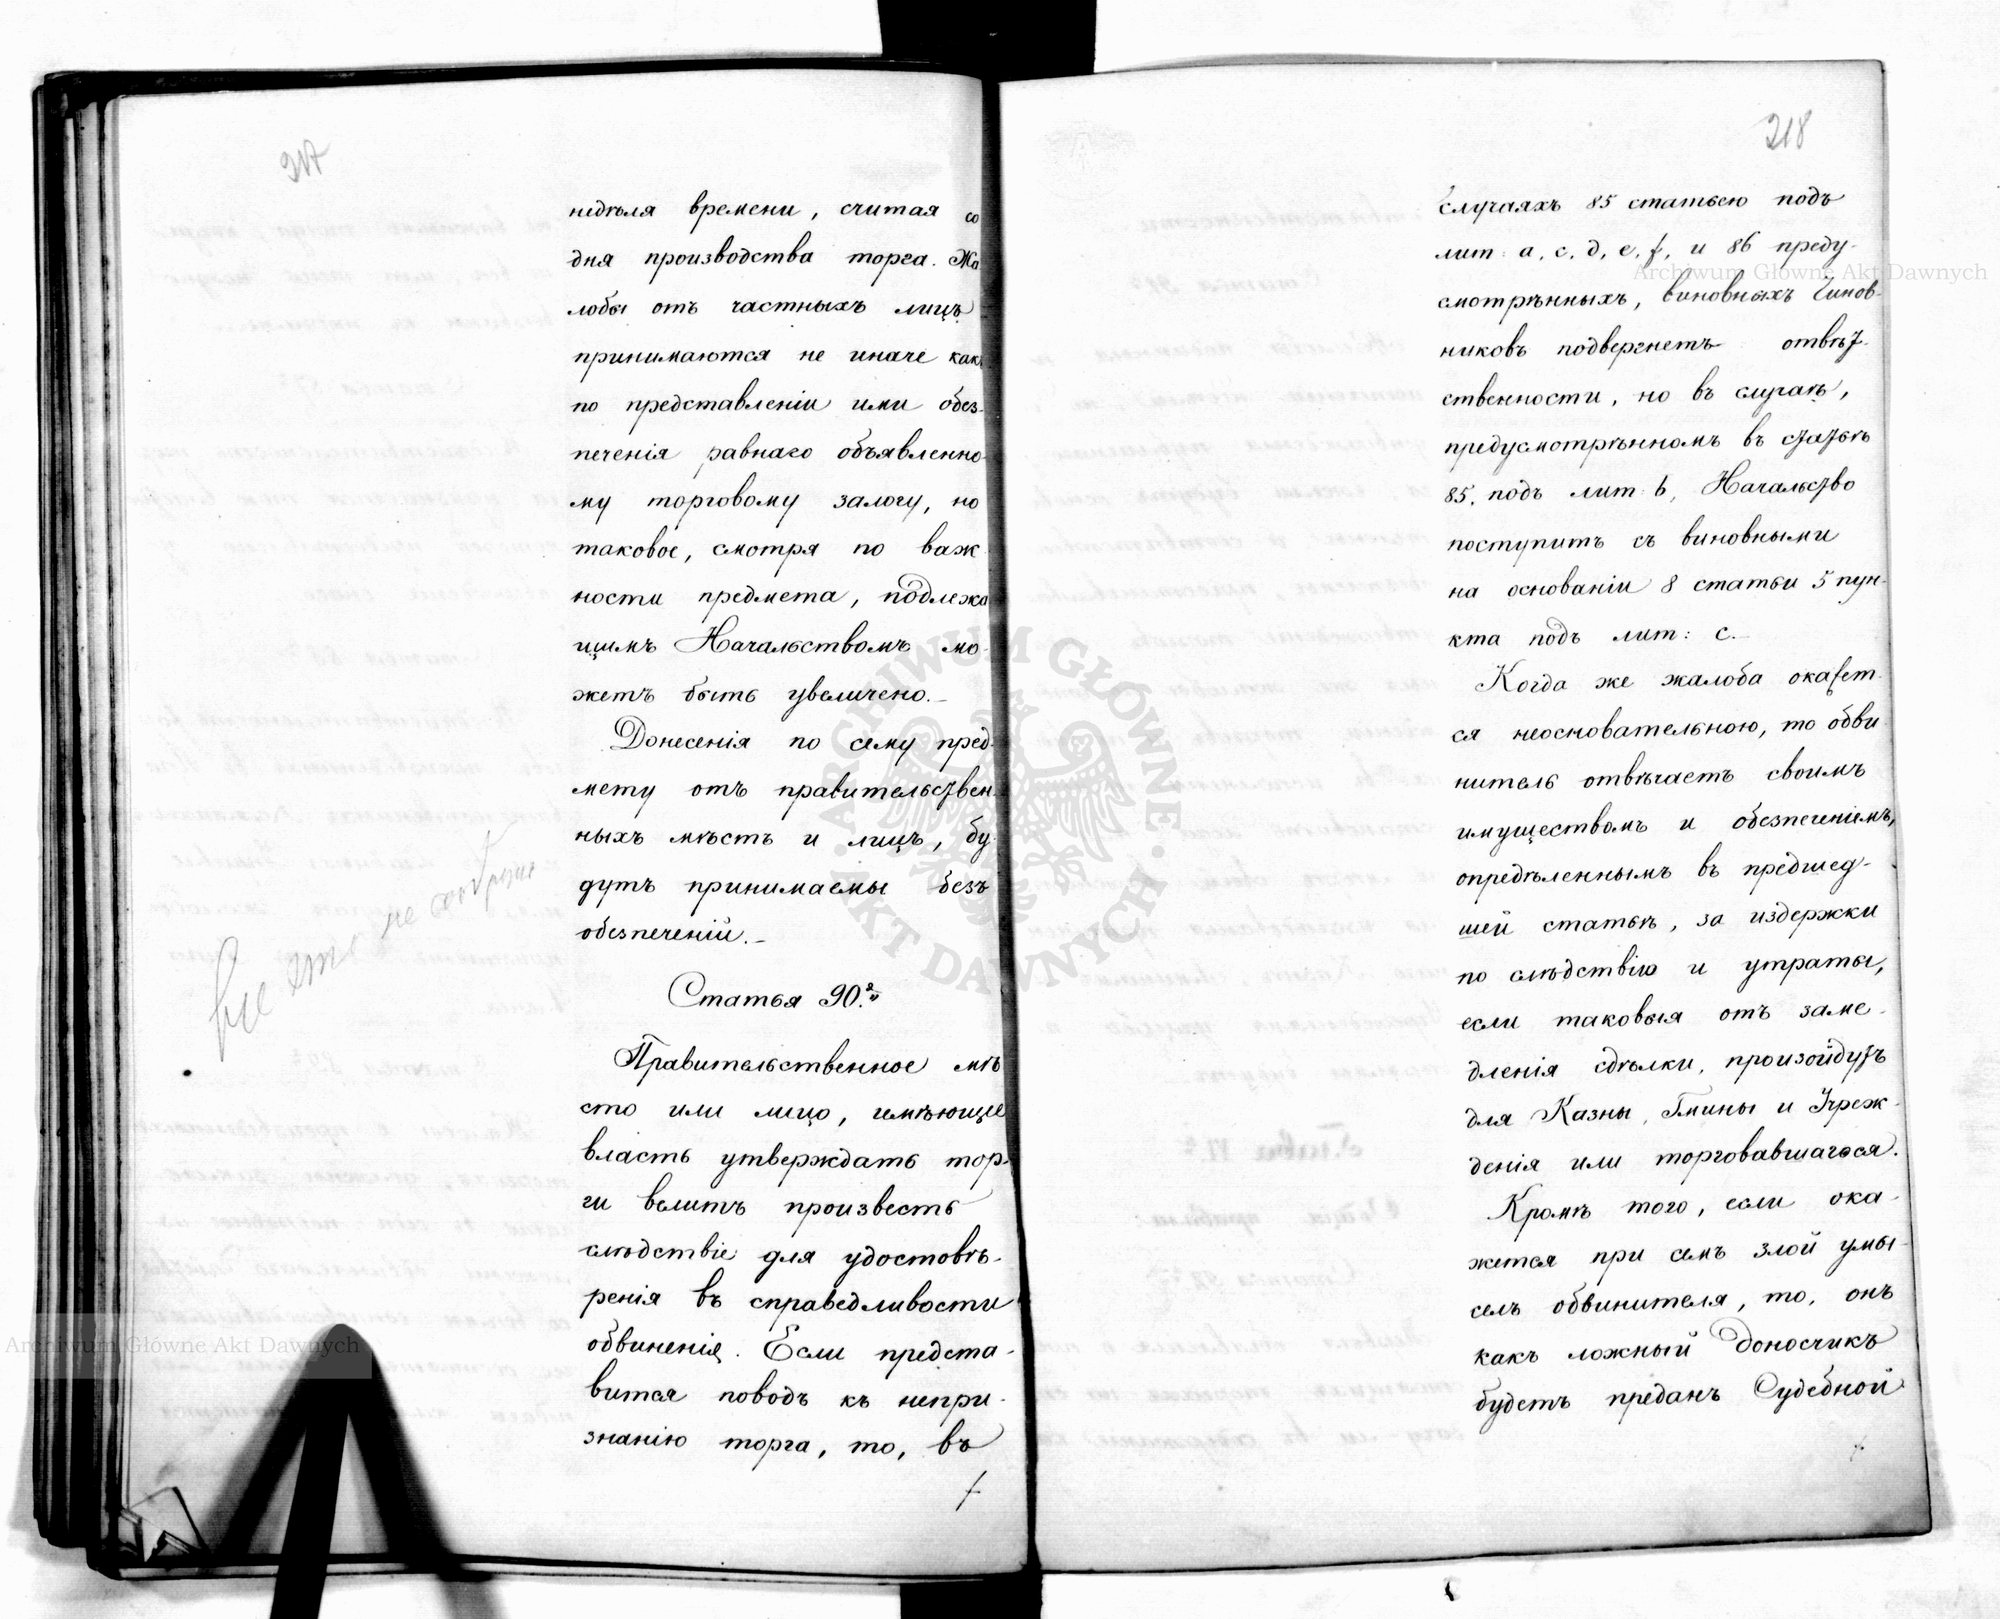 217
недѣля времени, считая со
дня производства торга. Жа
лобы отъ частныхъ лицъ
принимаются не иначе какъ
по представленіи ими обез-
печенія равнаго объявленно-
му торговому залогу, но
таковое, смотря по важ
ности предмета, подлежа
щимъ Начальствомъ мо-
жетъ быть увеличено.-
Донесенія по сему пред-
мету отъ правительствен
ныхъ мѣстъ и лицъ, бу
дутъ принимаемы безъ
обезпеченій.-
все это не
Статья 90.я
Правительственное мѣ
сто или лицо, имѣющие
власть утверждать тор-
ги велитъ произвесть
слѣдствіе для удостовѣ-
ренія въ справедливости
обвиненія. Если предста-
вится поводъ къ непри-
знанію торга, то, въ
218
случаяхъ 85 статьею подъ
лит: a, c, d, e, f, и 86 преду-
смотрѣнныхъ, виновныхъ Чинов-
никовъ подвергнетъ отвѣт-
ственности, но въ случаѣ,
предусмотрѣнномъ въ статьѣ
85. подъ лит: b, Начальство
поступитъ съ виновными
на основаніи 8 статьи 5 пун-
кта подъ лит: c.-
Когда же жалоба окажет-
ся неосновательною, то обви
нитель отвѣчаетъ своимъ
имуществомъ и обезпеченіемъ,
опредѣленнымъ въ предшед-
шей статьѣ, за издержки
по слѣдствію и утраты,
если таковыя отъ заме-
дленія сдѣлки, произойдутъ
для Казны, Гмины и Учреж-
денія или торговавшагося.
Кромѣ того, если ока-
жется при семъ злой умы-
селъ обвинителя, то, онъ
какъ ложный доносчикъ
будетъ преданъ Судебной
Archiwum Główne Akt Dawnych
Archiwum Główne Akt Dawnych
ARCHIWUM GŁÓWNE AKT DAWNYCH